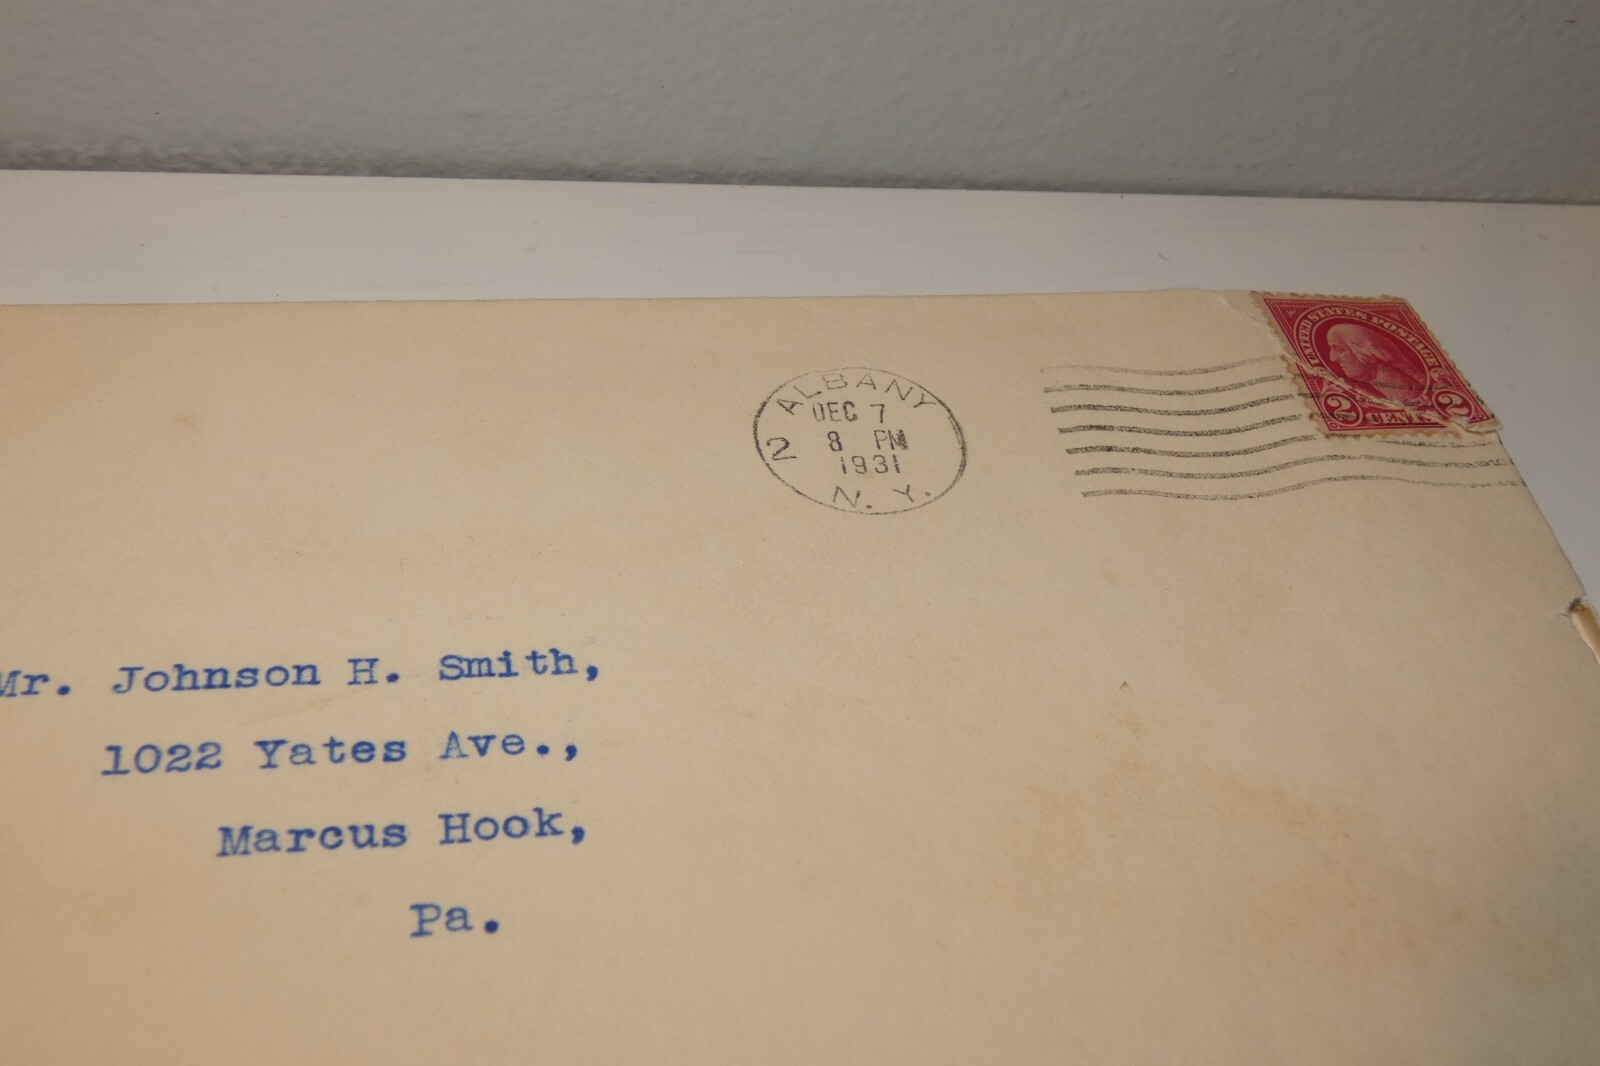 UNITED STATES POSTAGE
2 CENTS 2
ALBANY
DEC 7
2 8 PM
1931
N. Y.
Mr. Johnson H. Smith,
1022 Yates Ave.,
Marcus Hook,
Pa.